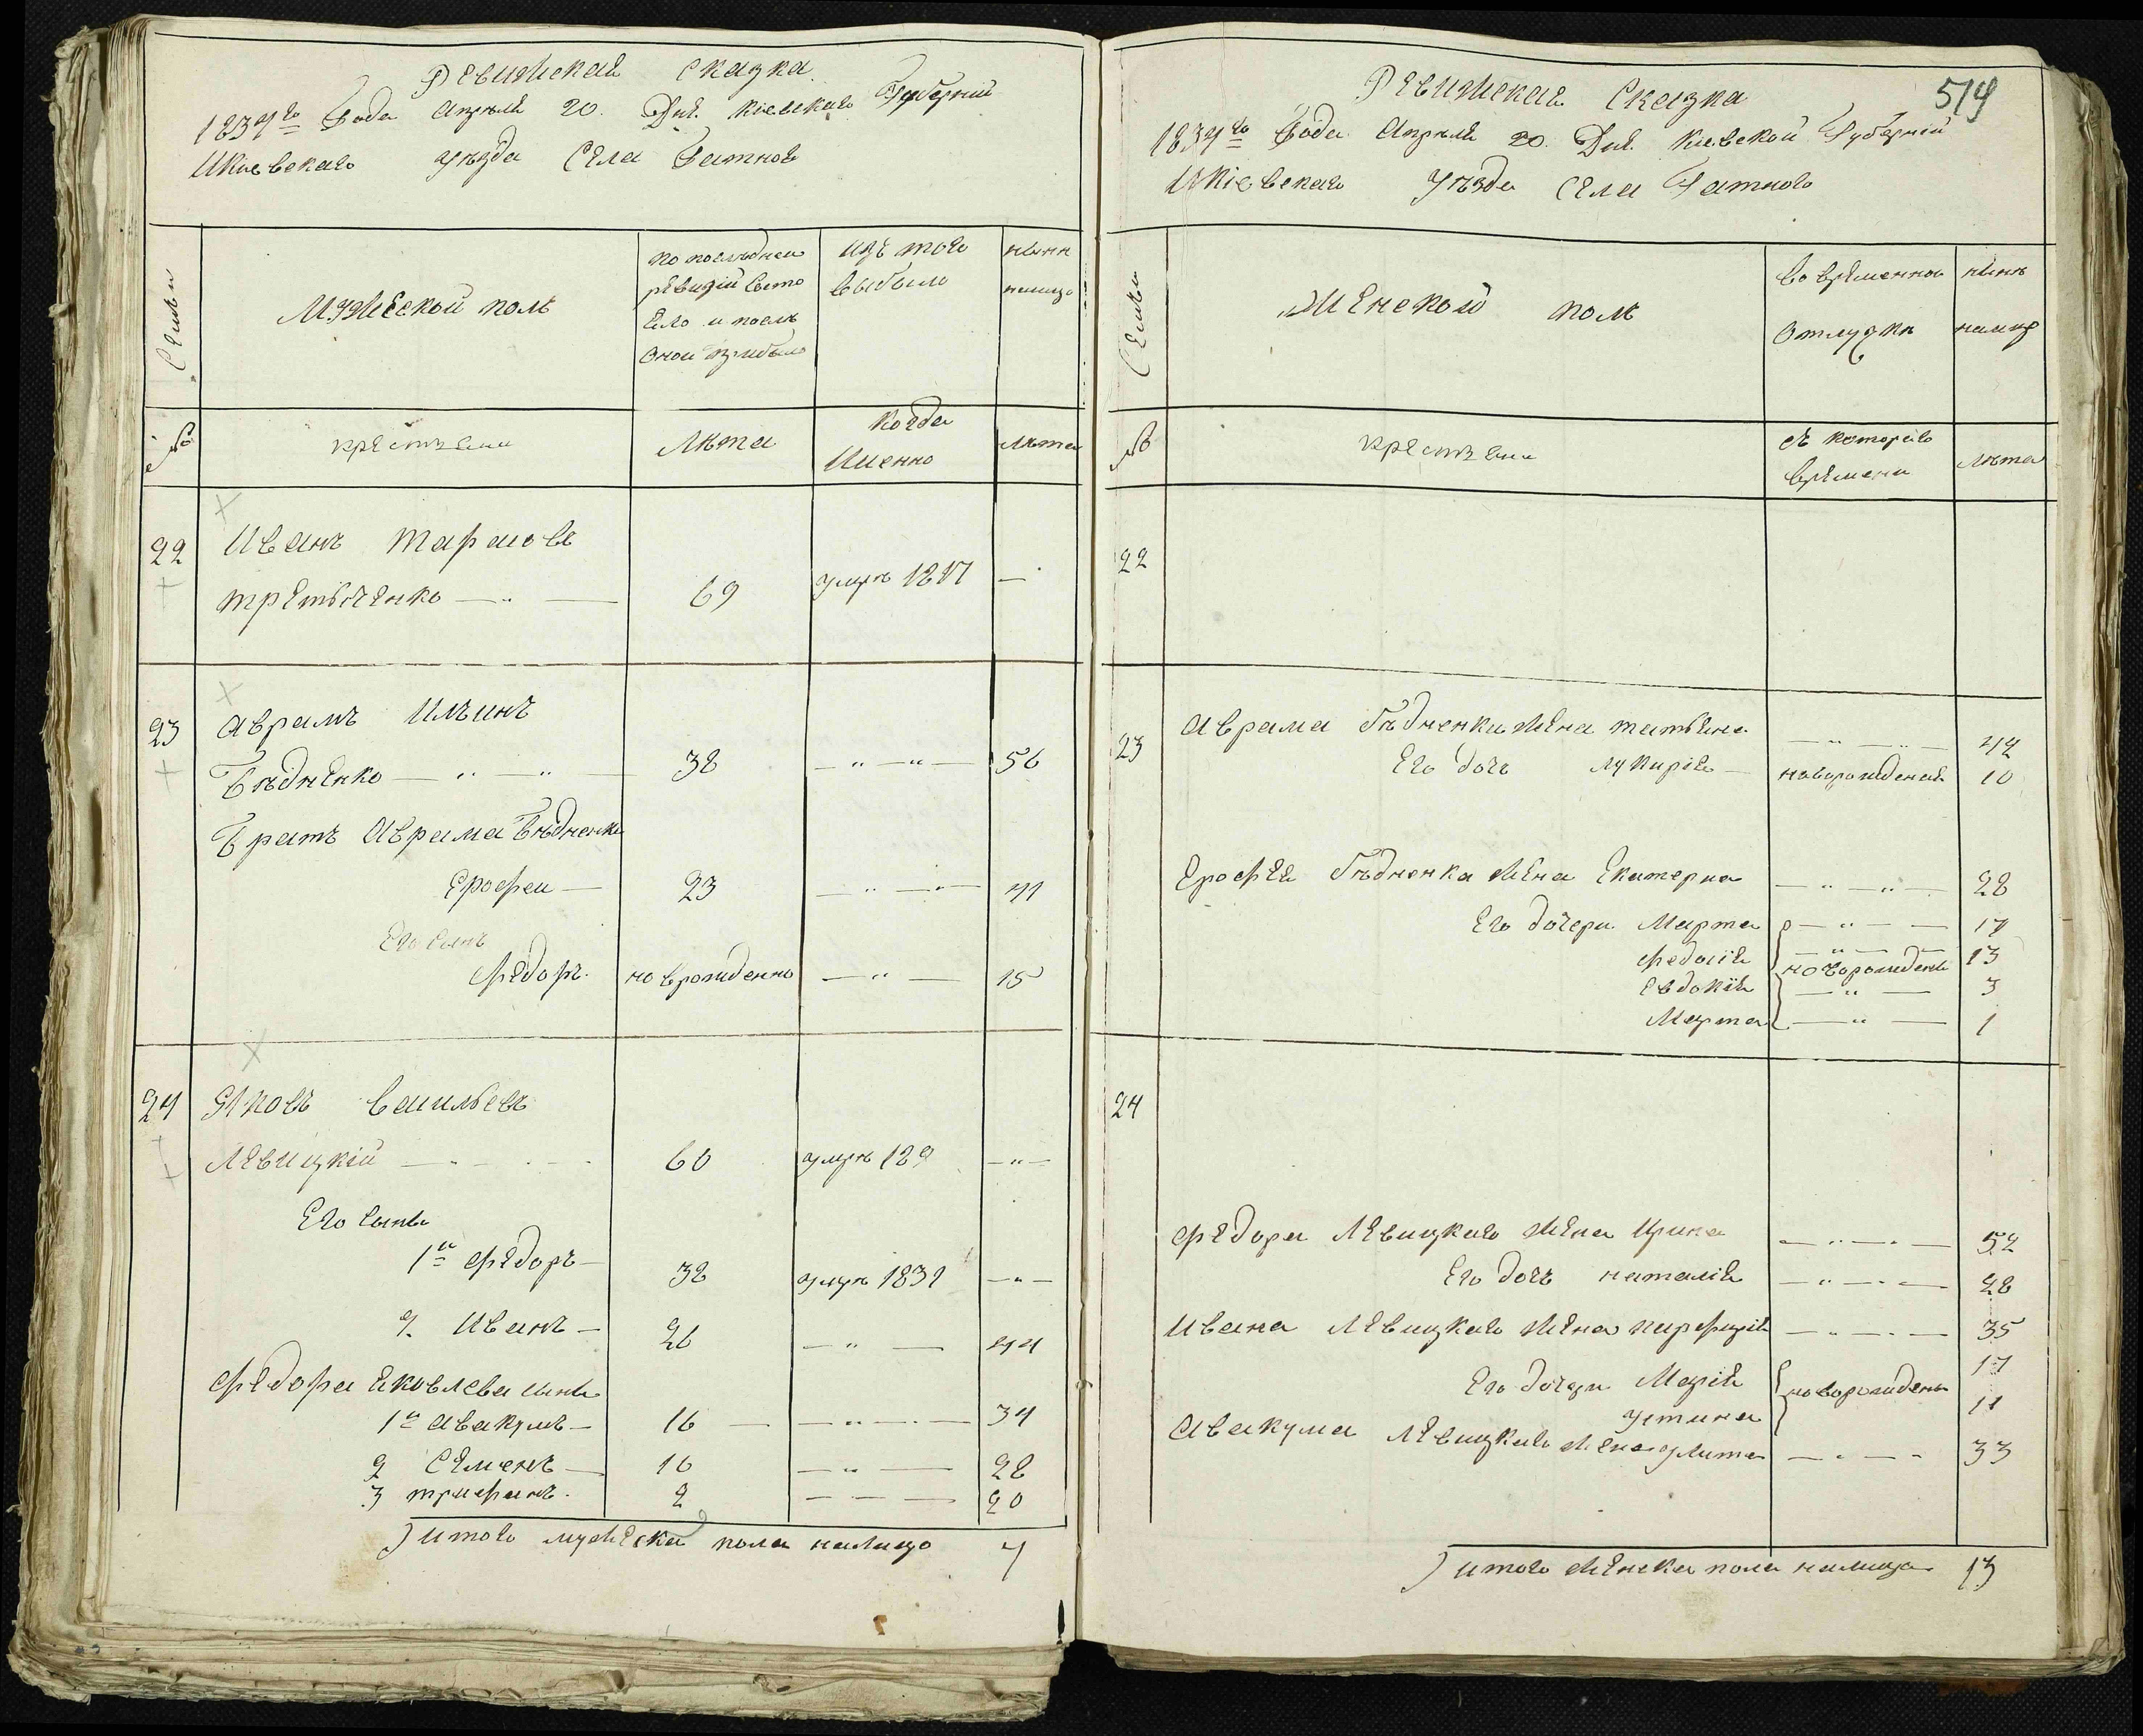 Ревижская сказка
1834го Года Апреля 20. Дня Кіевская Губерніи
И Кіевскаго уезда Села Гатное
Семьи
Мужеской полъ
по последней
ревизіи состо
яло и после
оной прибыло
изъ того
выбыло
ныне
налицо
№
крестьяни
Лета
когда
Именно
Лета
22
Иванъ Тарасовъ
третьяченко
69
умре 1817
23
Аврамъ Ильинъ
Бедненко
38
56
Братъ Аврама Бедненка
Ерофеи
23
41
Его сынъ
Федоръ
новорожденно
15
24
Яковъ васильевъ
Левицкій
60
умре 182
Его сыны
1й Федоръ
38
умре 1831
2. Иванъ
26
44
Федора Яковлева сыны
1й Авакумъ
16
34
2 Семенъ
10
28
3 трифанъ
2
20
Итого мужеска пола налицо 7
514
Ревижская Сказка
1834го Года Апреля 20. Дня Кіевской Губерніи
И Кіевскаго Уезда Села Гатного
Семьи
Женской полъ
во временной
отлучке
ныне
налицо
№
крестьяни
съ котораго
времени
лета
22
23
Аврама бедненки жена татьяна
42
Его дочь лукирія
новорожденая
10
Ерофея бедненка жена Екатерина
28
Его дочери Марта
17
Федосія
новорождены
13
Евдокія
3
Марта
1
24
Федора Левицкаго жена Ирина
52
Его дочь наталія
28
Ивана Левицкаго жена
35
Его дочери Марія
новорождены
17
устина
11
Авакума Левицкаго жена улита
33
Итого женска пола налицо 13